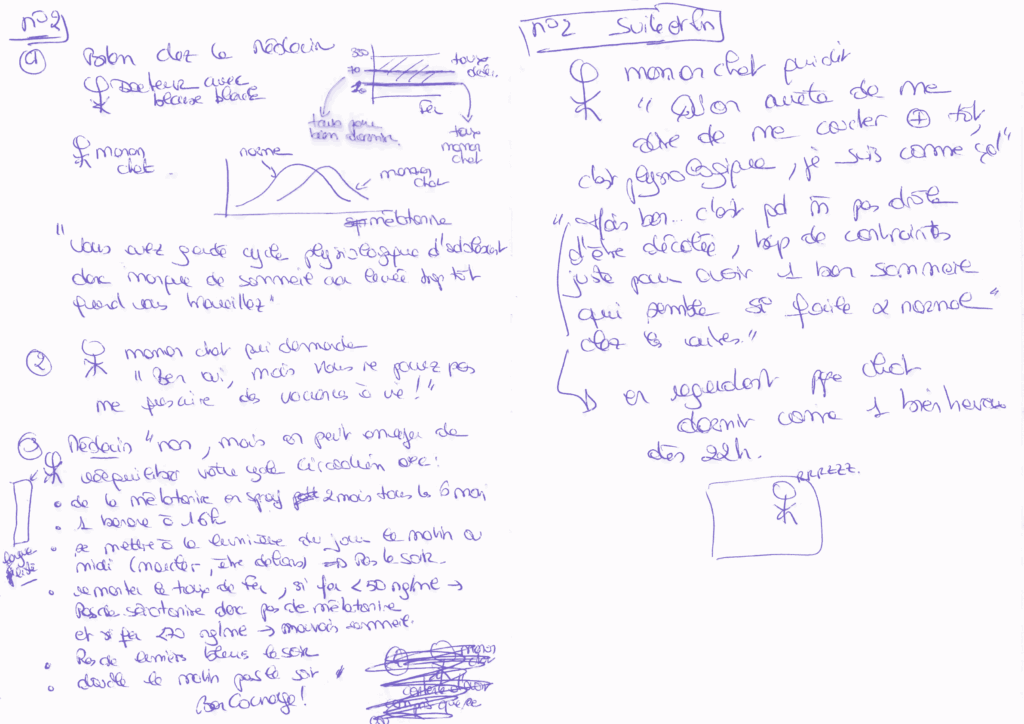 n°2
①
Bilan chez le Médecin
Docteur avec
blouse blanche
maman
chat
300
70
taux
fer
taux pour
bien dormir
taux
maman
chat
norme
maman
chat
mélatonine
"Vous avez gardé cycle physiologique d'adolescent
donc manque de sommeil car levée trop tôt
quand vous travaillez"
②
maman chat qui demande
"Ben oui, mais vous ne pouvez pas
me prescrire des vacances à vie !"
③
Médecin "non, mais on peut essayer de
rééquilibrer votre cycle circadien avec :
• de la mélatonine en spray 2 mois tous les 6 mois
• 1 banane à 16h
• se mettre à la lumière du jour le matin ou
midi (marcher, être dehors) ⇒ Pas le soir.
• remonter le taux de fer, si fer < 50 ng/ml →
Pas de sérotonine donc pas de mélatonine
et si fer < 70 ng/ml → mauvais sommeil.
• Pas de lumière bleue le soir
• douche le matin pas le soir
Bon Courage !
maman
chat
n°2 Suite et fin
maman chat qui dit
"Qu'on arrête de me
dire de me coucher ⊕ tôt,
c'est physiologique, je suis comme ça"
"Mais bon... c'est qd m̂ pas drôle
d'être décalée, trop de contraintes
juste pour avoir 1 bon sommeil
qui semble si facile & normal
chez les autres."
en regardant papa chat
dormir comme 1 bienheureux
dès 22h.
RRRZZZ.